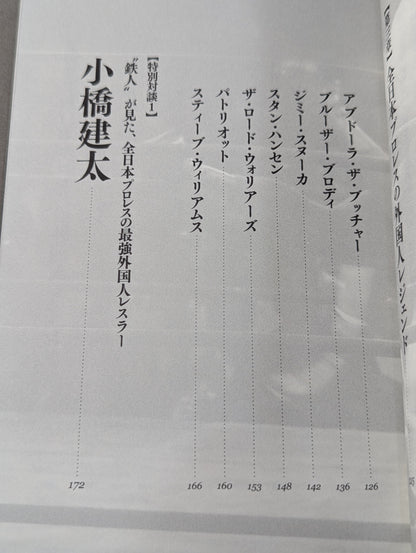 全日本プロレスの外国人レジェンド
アブドーラ・ザ・ブッチャー 126
ブルーザー・ブロディ 136
ジミー・スヌーカ 142
スタン・ハンセン 148
ザ・ロード・ウォリアーズ 153
パトリオット 160
スティーブ・ウィリアムス 166
【特別対談1】
“鉄人”が見た、全日本プロレスの最強外国人レスラー
小橋建太 172